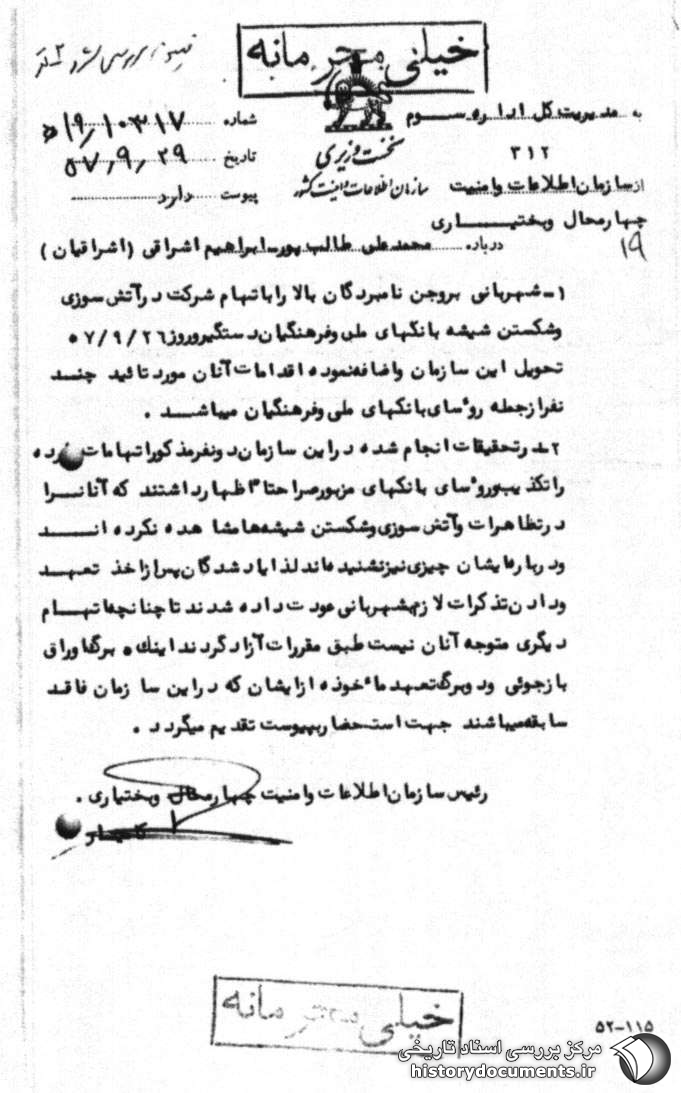 خیلی محرمانه
به مدیریت کل اداره سوم
۳۱۲
از سازمان اطلاعات وامنیت
چهارمحال وبختیاری
۱۹
نخست وزیری
سازمان اطلاعات و امنیت کشور
شماره ۱۰۳۱۷/۱۹ه
تاریخ ۵۷/۹/۲۹
پیوست دارد
درباره محمدعلی طالب پور-ابراهیم اشراقی (اشراقیان)
۱-شهربانی بروجن نامبردگان بالا را باتهام شرکت درآتش سوزی
وشکستن شیشه بانکهای ملی وفرهنگیان دستگیروروز ۵۷/۹/۲٦
تحویل این سازمان واضافه نموده اقدامات آنان مورد تائید چند
نفرازجمله روٴسای بانکهای ملی وفرهنگیان میباشد .
۲-درتحقیقات انجام شده دراین سازمان دونفرمذکوراتهامات ‌‌‌‌ده
راتکذیب وروٴسای بانکهای مزبورصراحتا" اظهارداشتند که آنانرا
درتظاهرات وآتش سوزی وشکستن شیشه‌ها مشاهده نکرده اند
ودرباره‌ایشان چیزی نیزنشنیده‌اند لذا یادشدگان پس ازاخذ تعهد
ودادن تذکرات لازم بشهربانی عودت داده شدند تا چنانچه اتهام
دیگری متوجه آنان نیست طبق مقررات آزاد گردند اینک ۵ برگ اوراق
بازجوئی ودوبرگ تعهد ماٴخوذه ازایشان که دراین سازمان فاقد
سابقه میباشند جهت استحضار بپیوست تقدیم میگردد .
رئیس سازمان اطلاعات وامنیت چهارمحال وبختیاری .
خیلی محرمانه
۵۲-۱۱۵
مرکز بررسی اسناد تاریخی
historydocuments.ir